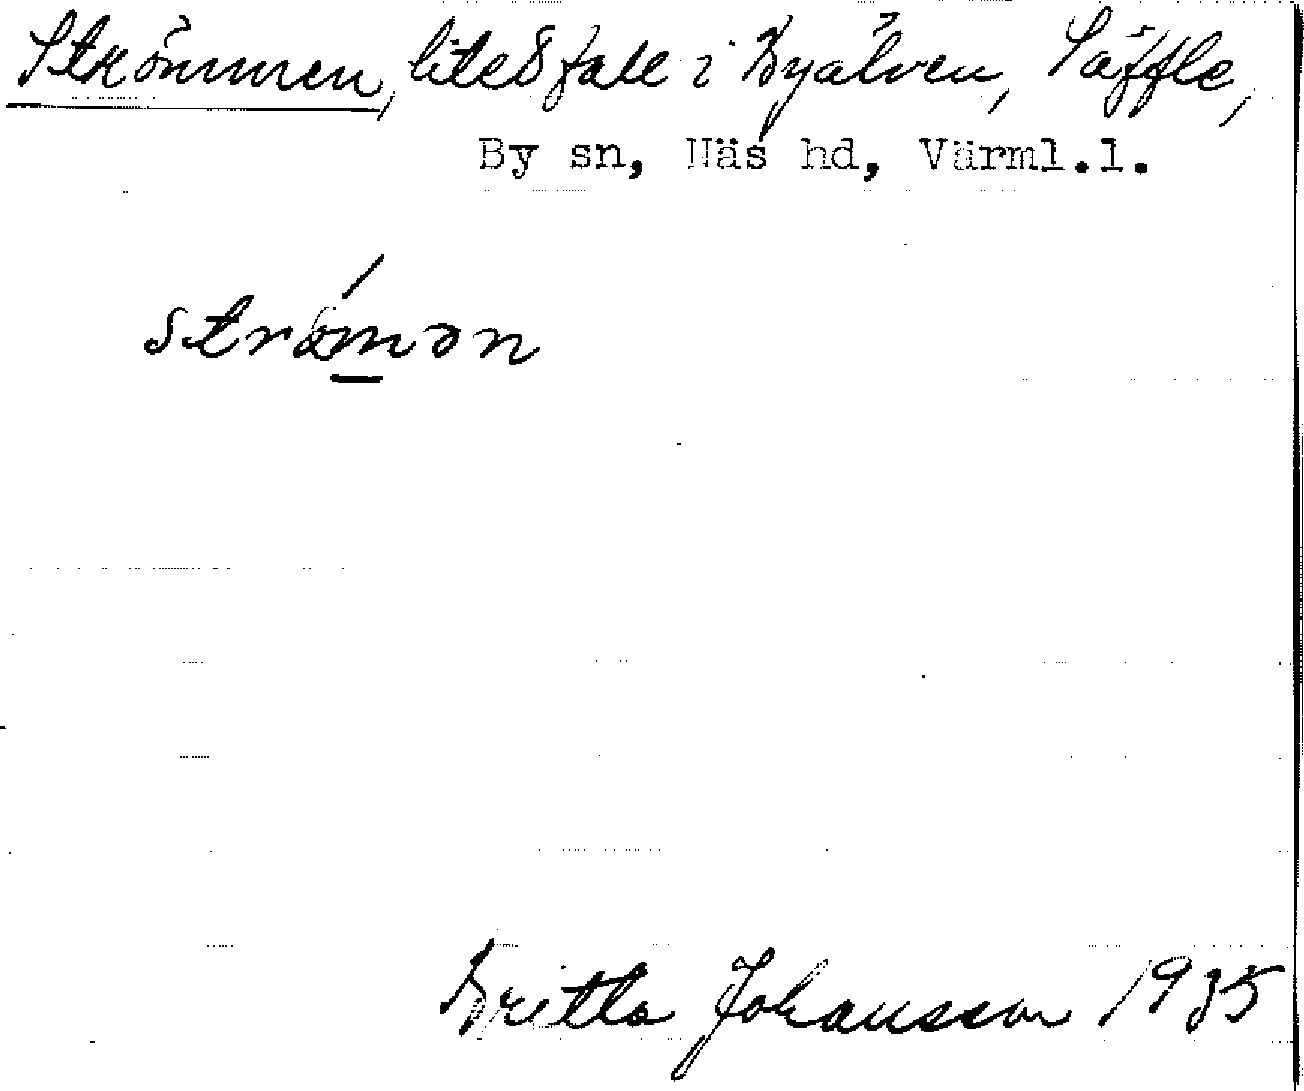 Strömmen, litet fall i Byälven, Säffle,
By sn, Näs hd, Värml.l.
strömən
Britta Johansson 1935